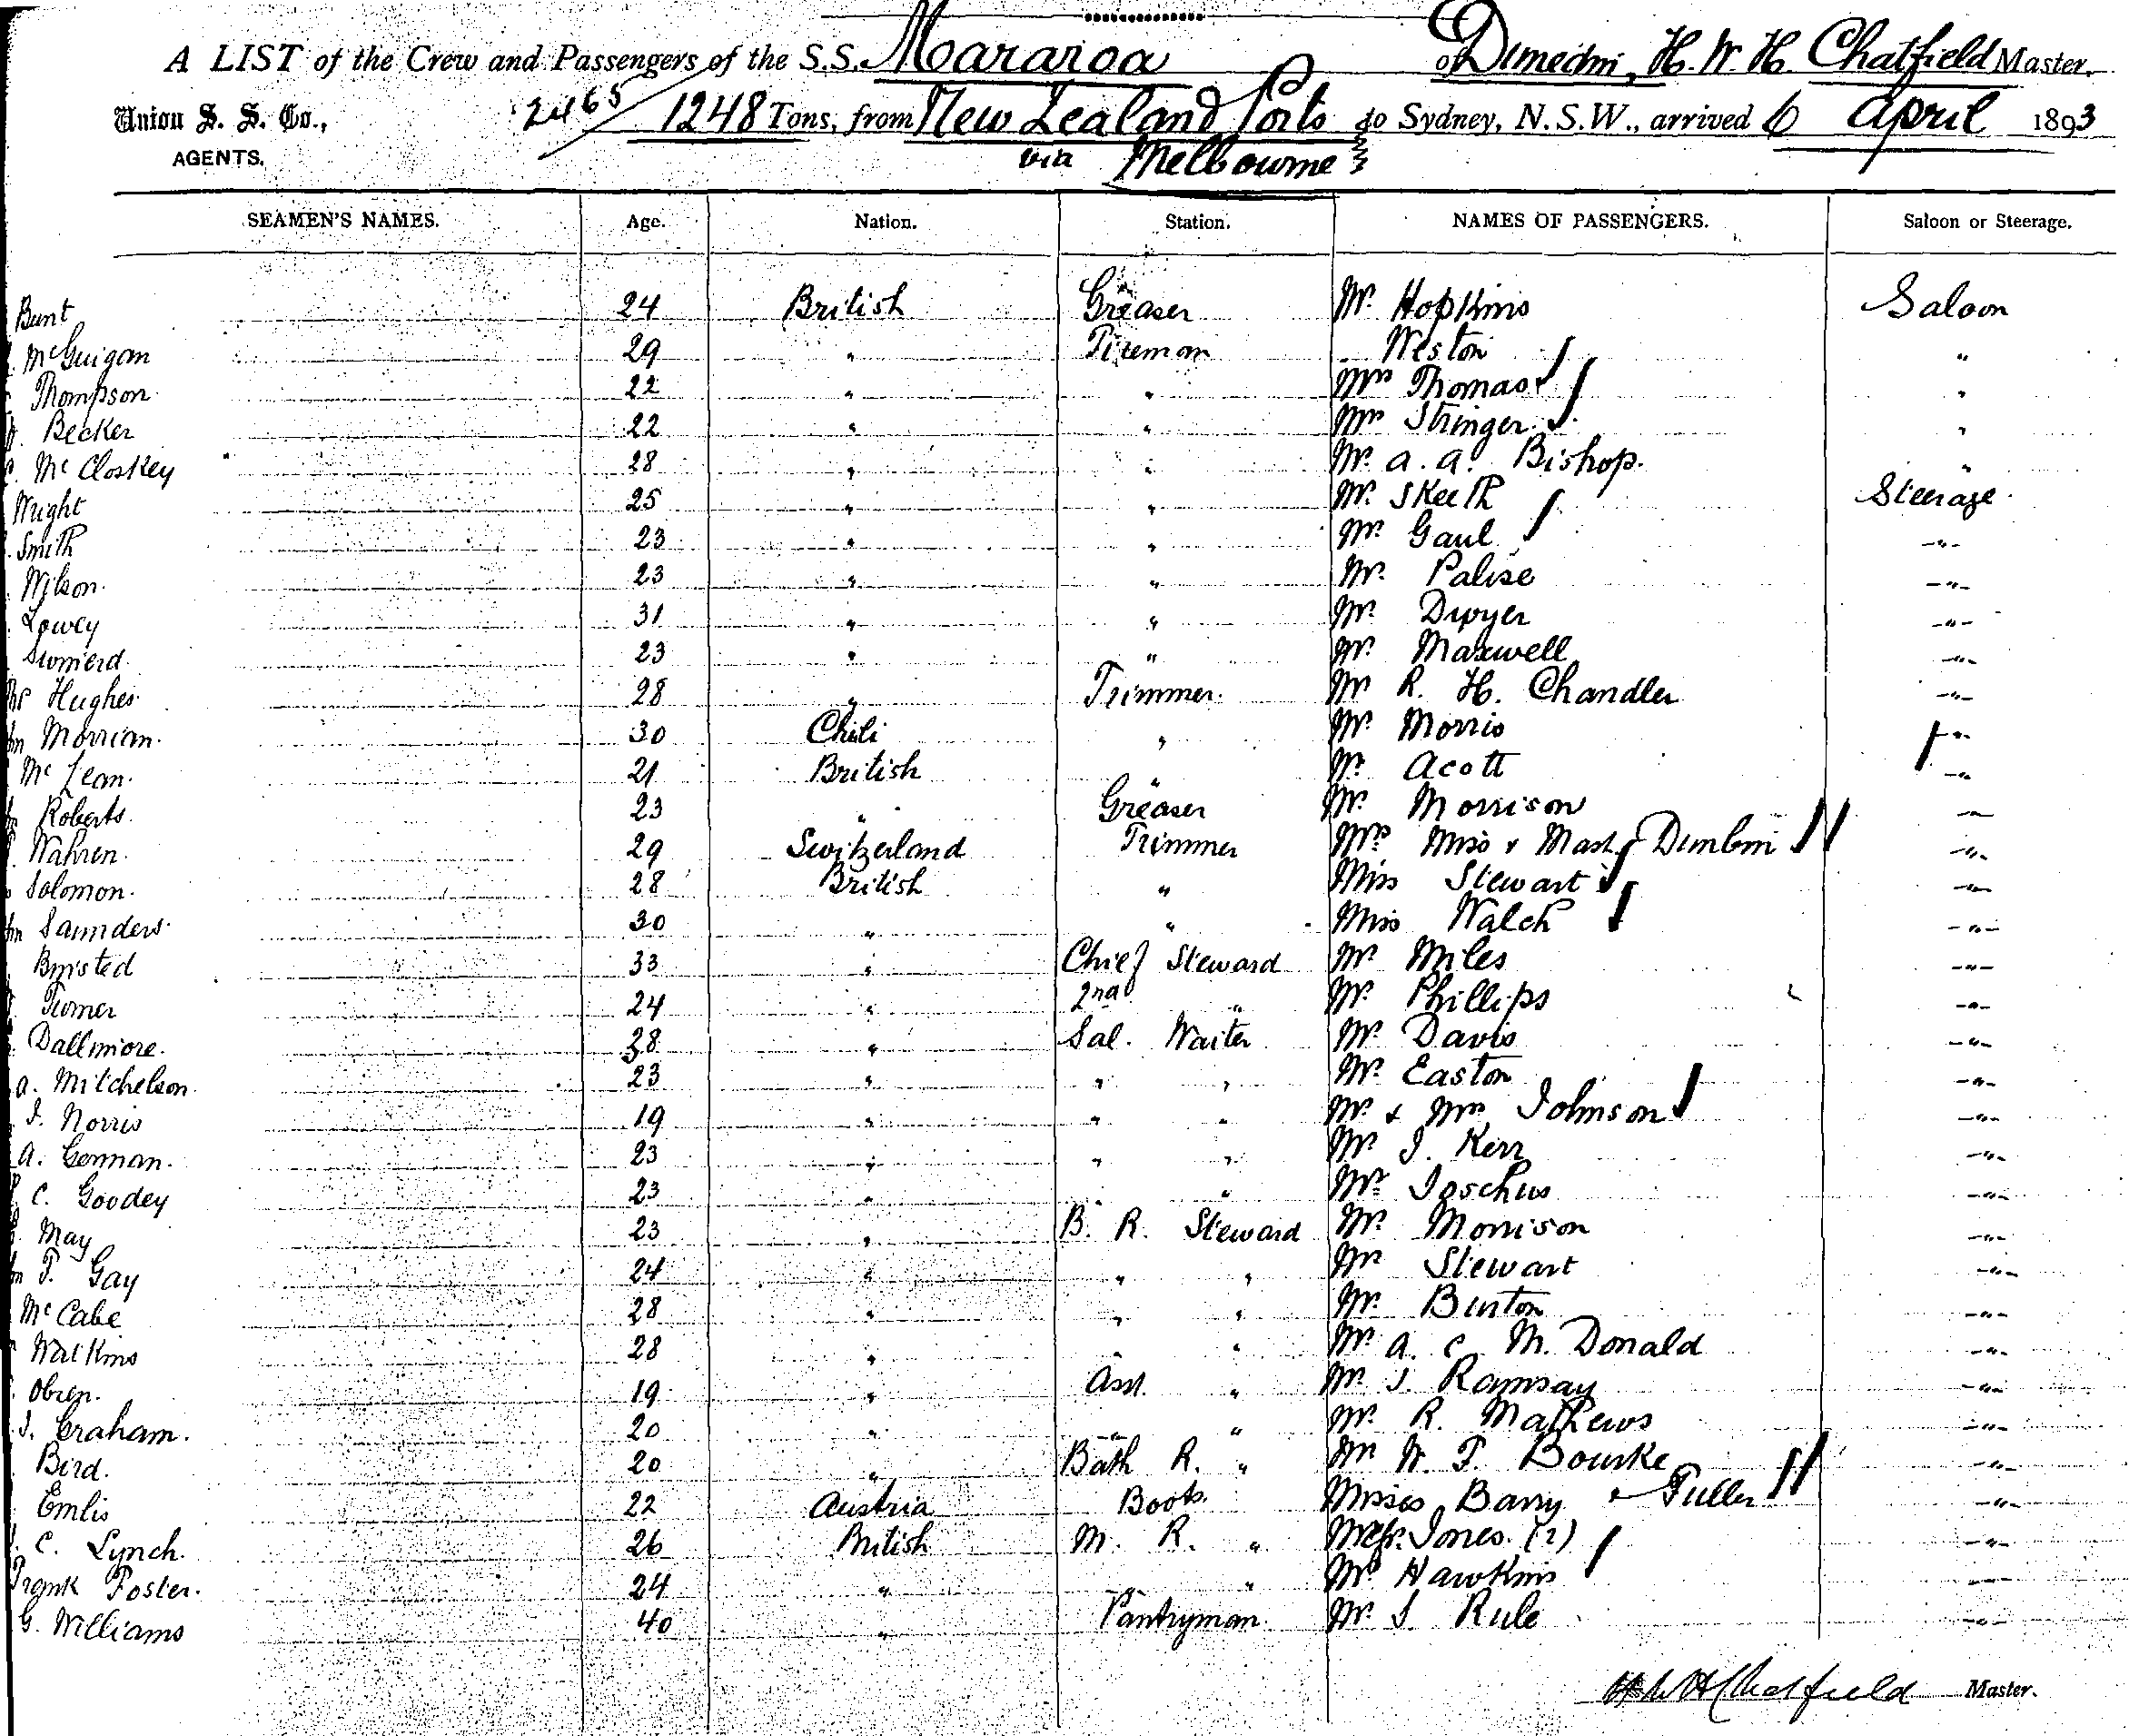 A LIST of the Crew and Passengers of the S.S. Mararoa of Dunedin, H. W. H. Chatfield Master.
Union S. S. Co., 2465 1248 Tons, from New Zealand Ports to Sydney, N.S.W., arrived 6 April 1893
AGENTS. via Melbourne
SEAMEN'S NAMES. Age. Nation. Station. NAMES OF PASSENGERS. Saloon or Steerage.
Bunt 24 British Greaser Mr. Hopkins Saloon
McGuigan 29 " Fireman Weston "
Thompson 22 " " Mrs Thomas "
Becker 22 " " Mrs Stringer "
McCloskey 28 " " Mr. A. A. Bishop. "
Wright 25 " " Mr. Skeeth Steerage
Smith 23 " " Mr. Gaul "
Wilson 23 " " Mr. Palise "
Lowey 31 " " Mr. Dwyer "
23 " " Mr. Maxwell "
Hughes 28 " Trimmer. Mr R. H. Chandler "
Morrian. 30 Chili " Mr. Morris "
McLean. 21 British " Mr. Acott "
Roberts. 23 " Greaser Mr. Morrison "
Wahren. 29 Switzerland Trimmer Mrs Miss & Mast. "
Solomon. 28 British " Miss Stewart "
Saunders. 30 " " Miss Walch "
33 " Chief Steward Mr. Miles "
Turner 24 " 2nd " Mr. Phillips "
Dallimore. 28 " Sal. Waiter Mr. Davis "
A. Mitchelson. 23 " " " Mr. Easton "
J. Norris 19 " " " Mr. & Mrs Johnson "
A. Gorman. 23 " " " Mr. J. Kerr "
C. Goodey 23 " " " Mr. Joschus "
May 23 " B. R. Steward Mr. Morrison "
T. Gay 24 " " " Mr. Stewart "
McCabe 28 " " " Mr. Burton "
Watkins 28 " " " Mr. A. C. M. Donald "
Obrien. 19 " Asst. " Mr. J. Ramsay "
J. Graham. 20 " " " Mr. R. Mathews "
Bird. 20 " Bath R. " Mr W. F. Bourke "
Emlis 22 Austria Boots. Misses Barry & Fuller "
C. Lynch. 26 British M. R. " Jones. (2) "
Frank Foster. 24 " " " Hawkins "
G. Williams 40 " Pantryman. Mr. J. Rule "
H W H Chatfield Master.